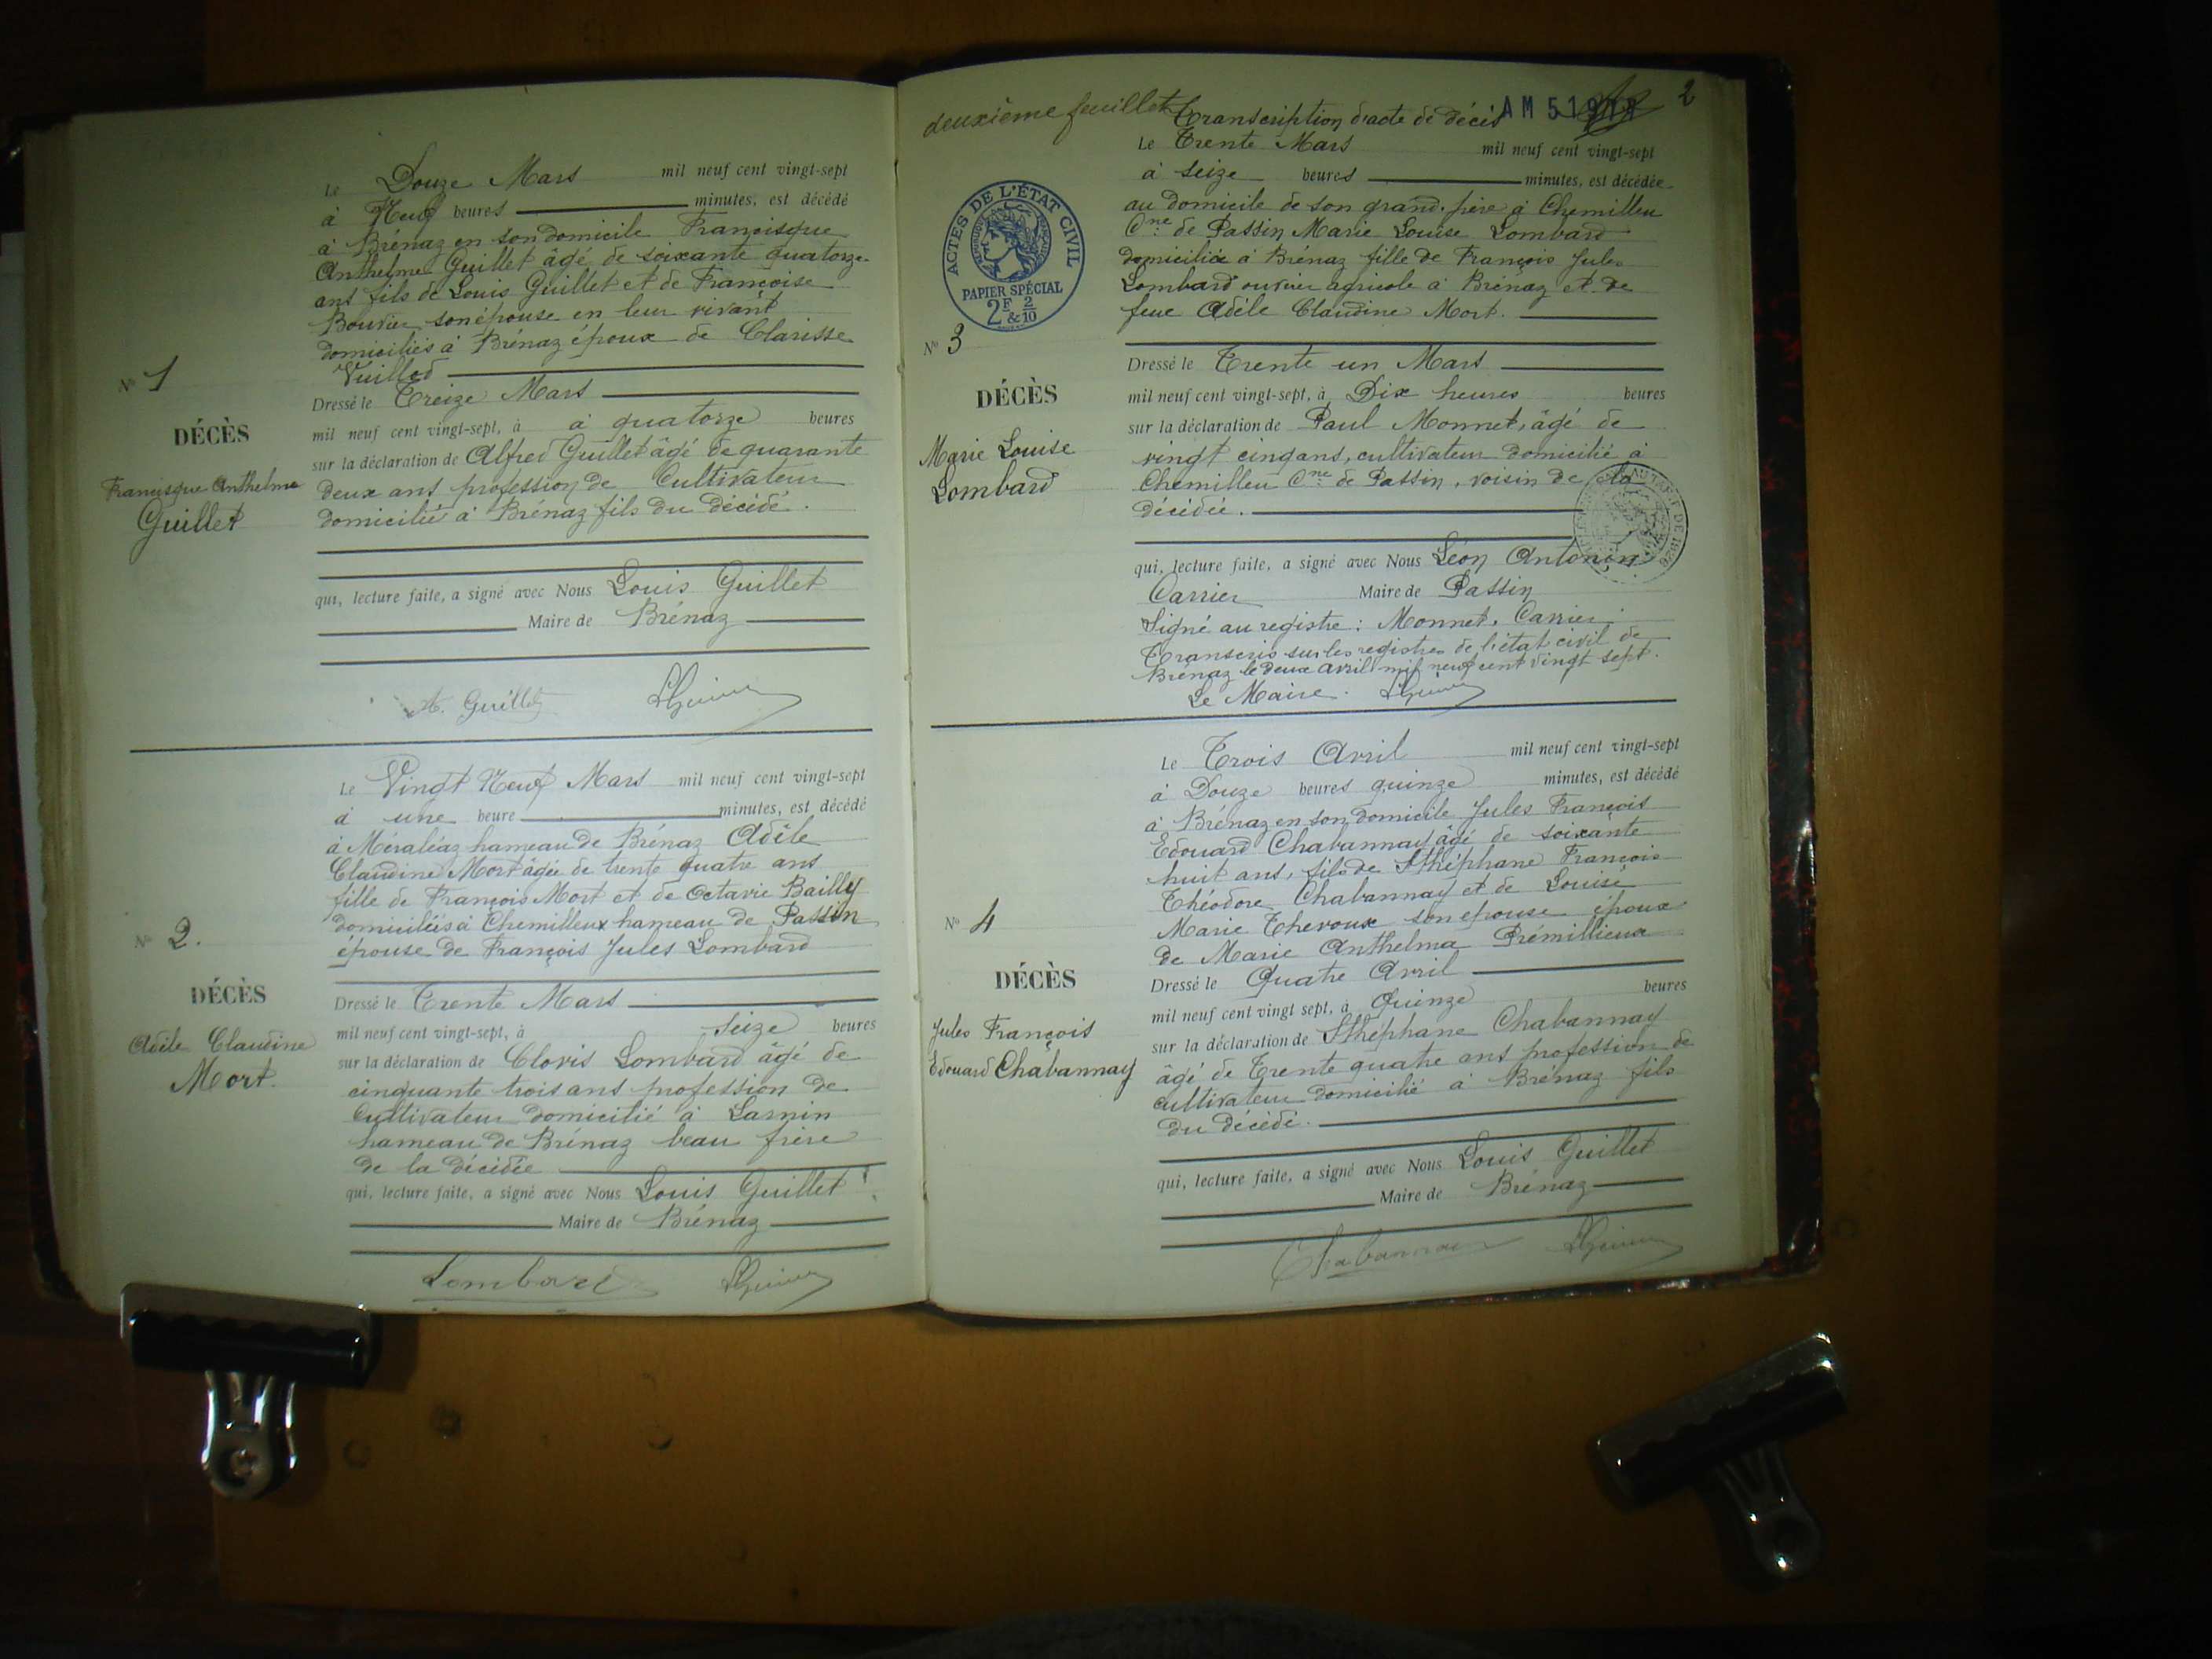 Le Douze Mars mil neuf cent vingt-sept
à Neuf heures minutes, est décédé
à Brénaz en son domicile Francisque
Anthelme Guillet âgé de soixante quatorze
ans fils de Louis Guillet et de Françoise
Bouvier son épouse en leur vivant
domiciliés à Brénaz époux de Clarisse
Vuillod
Nº 1
DÉCÈS
Francisque Anthelme
Guillet
Dressé le Treize Mars
mil neuf cent vingt-sept, à à quatorze heures
sur la déclaration de Alfred Guillet âgé de quarante
deux ans profession de Cultivateur
domicilié à Brénaz fils du décédé.
qui, lecture faite, a signé avec Nous Louis Guillet
Maire de Brénaz
A. Guillet
Le Vingt Neuf Mars mil neuf cent vingt-sept
à une heure minutes, est décédé
à Méraléaz hameau de Brénaz Adèle
Claudine Mort âgée de trente quatre ans
fille de François Mort et de Octavie Bailly
domiciliés à Chemilleux hameau de Passin
épouse de François Jules Lombard
Nº 2.
DÉCÈS
Adèle Claudine
Mort.
Dressé le Trente Mars
mil neuf cent vingt-sept, à Seize heures
sur la déclaration de Clovis Lombard âgé de
cinquante trois ans profession de
Cultivateur domicilié à
hameau de Brénaz beau frère
de la décédée
qui, lecture faite, a signé avec Nous Louis Guillet
Maire de Brénaz
Lombard
deuxième feuillet
Transcription d'acte de décès
AM 51
2
Le Trente Mars mil neuf cent vingt-sept
à seize heures minutes, est décédée
au domicile de son grand-père à Chemilleu
Cne de Passin Marie Louise Lombard
domiciliée à Brénaz fille de François Jules
Lombard ouvrier agricole à Brénaz et de
feue Adèle Claudine Mort.
ACTES DE L'ÉTAT CIVIL
PAPIER SPÉCIAL
2F & 2/10
Nº 3
DÉCÈS
Marie Louise
Lombard
Dressé le Trente un Mars
mil neuf cent vingt-sept, à Dix heures heures
sur la déclaration de Paul Monnet, âgé de
vingt cinq ans, cultivateur domicilié à
Chemilleu Cne de Passin, voisin de la
décédée.
qui, lecture faite, a signé avec Nous Léon Antonin
Carrier Maire de Passin
Signé au registre : Monnet, Carrier
Transcris sur les registres de l'état civil de
Brénaz le deux avril mil neuf cent vingt sept.
Le Maire.
Le Trois Avril mil neuf cent vingt-sept
à Douze heures quinze minutes, est décédé
à Brénaz en son domicile Jules François
Edouard Chabannay âgé de soixante
huit ans, fils de Sthéphane François
Théodore Chabannay et de Louise
Marie Theroux son epouse époux
de Marie Anthelma Prémillieux
Nº 4
DÉCÈS
Jules François
Edouard Chabannay
Dressé le Quatre Avril
mil neuf cent vingt sept, à Quinze heures
sur la déclaration de Sthéphane Chabannay
âgé de Trente quatre ans profession de
cultivateur domicilié à Brénaz fils
du décédé.
qui, lecture faite, a signé avec Nous Louis Guillet
Maire de Brénaz
Chabannay